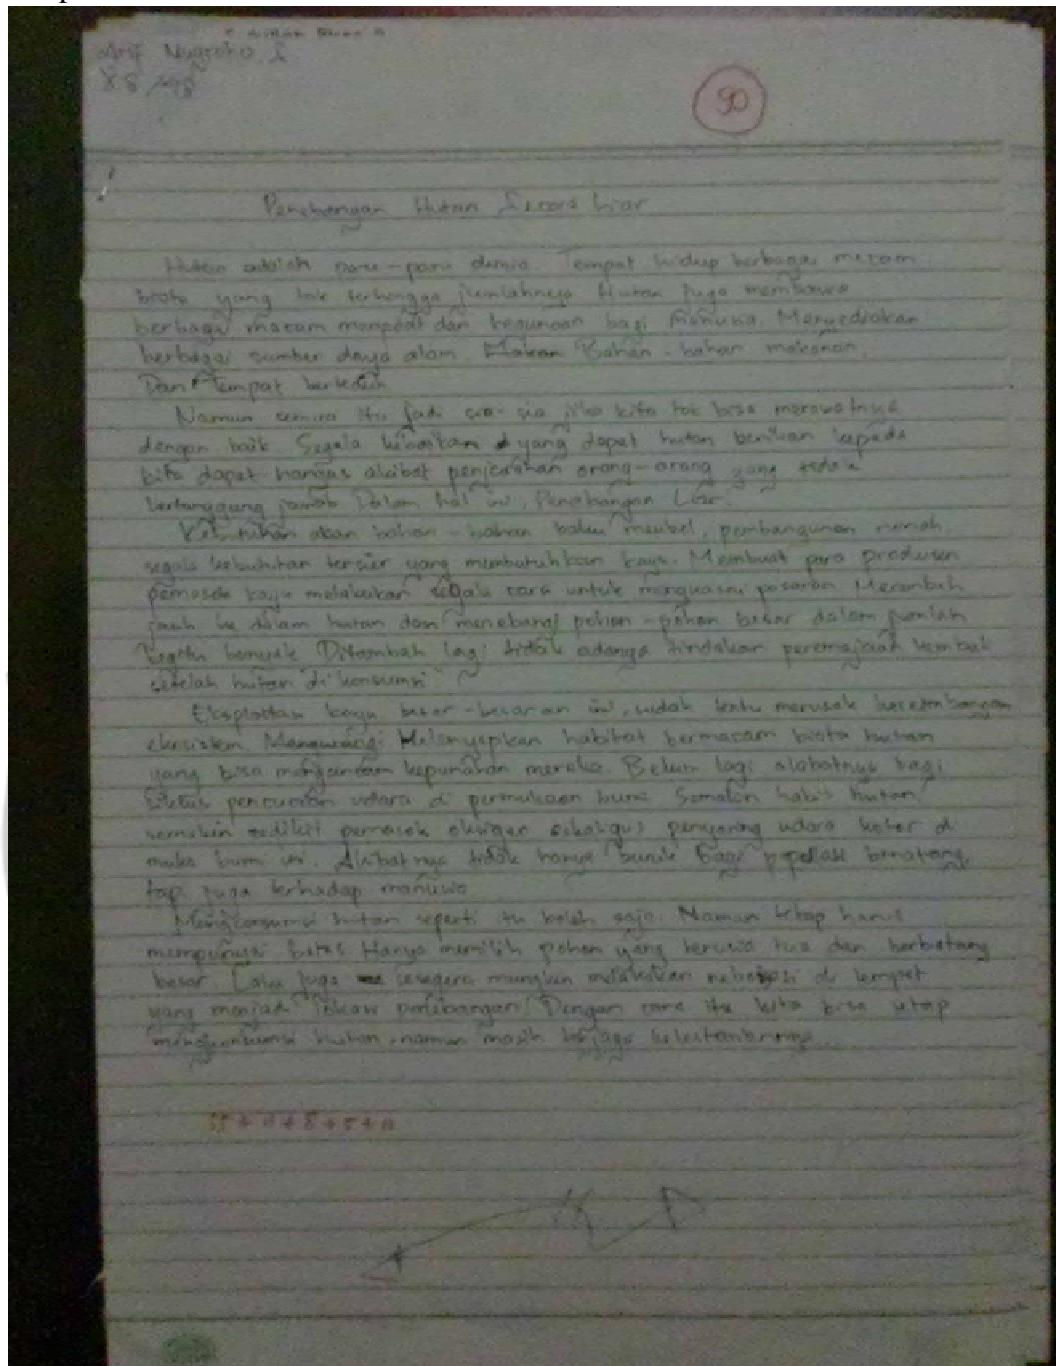 Arif Nugroho. S
X8 /
50
Penebangan Hutan Secara Liar
Hutan adalah paru-paru dunia. Tempat hidup berbagai macam
biota yang tak terhingga jumlahnya. Hutan juga membawa
berbagai macam manpaat dan kegunaan bagi manusia. Menyediakan
berbagai sumber daya alam. Bahan-bahan makanan,
Dan Tempat berteduh
Namun semua itu jadi sia-sia jika kita tak bisa merawatnya
dengan baik. Segala kebaikan yang dapat hutan berikan kepada
kita dapat hangus akibat penjarahan orang-orang yang tidak
bertanggung jawab Dalam hal ini, Penebangan Liar.
Kebutuhan akan bahan-bahan baku meubel, pembangunan rumah
segala kebutuhan tersier yang membutuhkan kayu. Membuat para produsen
pemasok kayu melakukan segala cara untuk menguasai pasaran Merambah
jauh ke dalam hutan dan menebangi pohon-pohon besar dalam jumlah
begitu banyak Ditambah lagi tidak adanya tindakan peremajaan kembali
setelah hutan "di konsumsi"
Eksploitasi kayu besar-besaran ini, sudah tentu merusak keseimbangan
ekosistem. Mengurangi Melenyapkan habitat bermacam biota hutan
yang bisa mengancam kepunahan mereka. Belum lagi akibatnya bagi
siklus pencucian udara di permukaan bumi Semakin habis hutan,
semakin sedikit pemasok oksigen sekaligus penyaring udara kotor di
muka bumi ini. Akibatnya tidak hanya buruk bagi populasi binatang,
tapi juga terhadap manusia
Mengkonsumsi hutan seperti itu boleh saja. Namun tetap harus
mempunyai batas Hanya memilih pohon yang berusia tua dan berbatang
besar. Lalu juga sesegera mungkin melakukan reboisasi di tempat
yang menjadi lokasi penebangan. Dengan cara itu kita bisa tetap
mengkonsumsi hutan, namun masih terjaga kelestariannya.